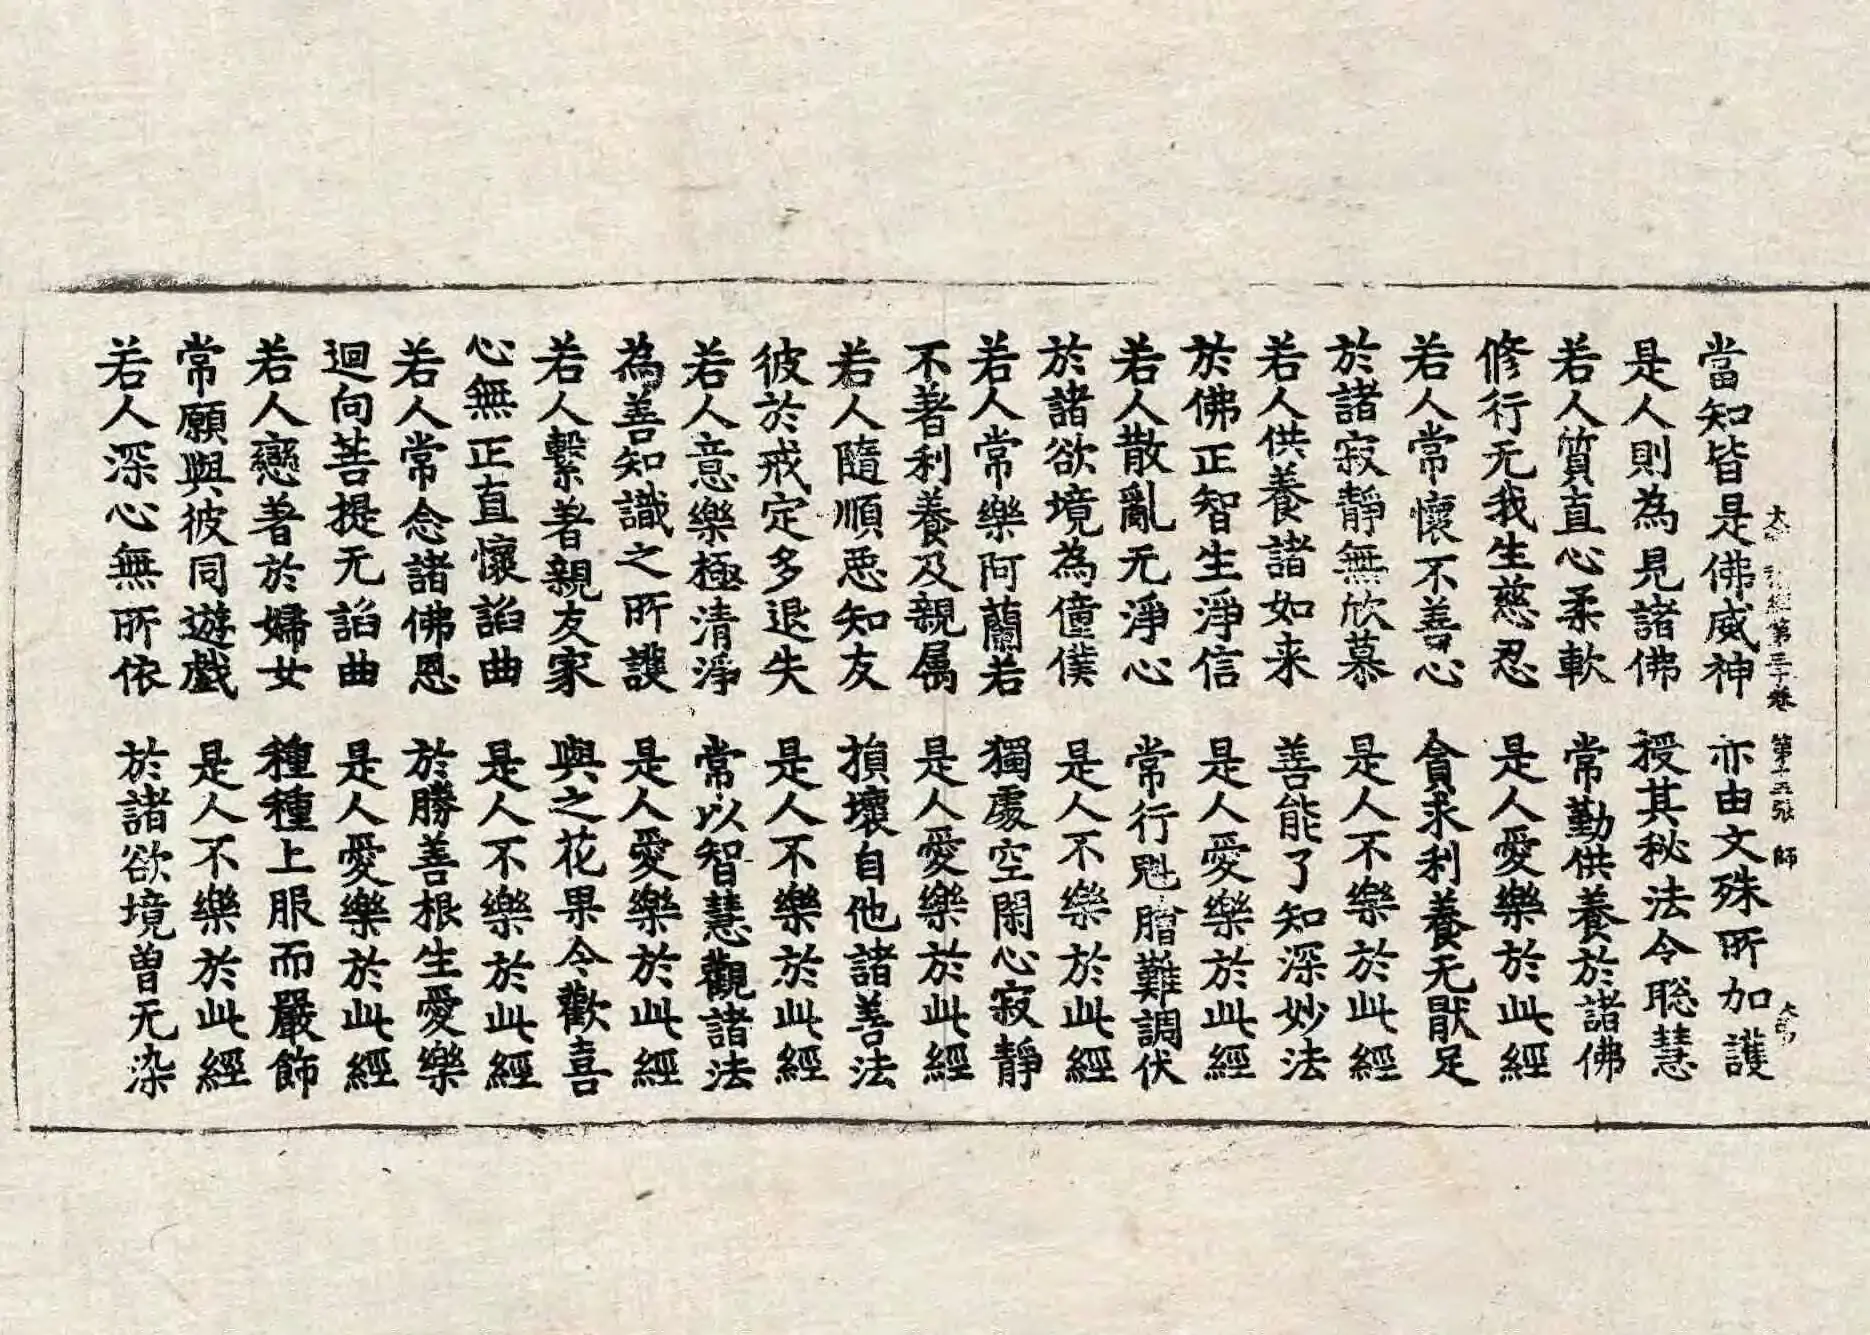 大經第三十卷 第十五張 師
當知皆是佛威神 亦由文殊所加護
是人則為見諸佛 授其秘法令聡慧
若人質直心柔軟 常勤供養於諸佛
修行无我生慈忍 是人愛樂於此經
若人常懷不善心 貪求利養无猒足
於諸寂靜無欣慕 是人不樂於此經
若人供養諸如来 善能了知深妙法
於佛正智生淨信 是人愛樂於此經
若人散亂无淨心 常行魁膾難調伏
於諸欲境為僮僕 是人不樂於此經
若人常樂阿蘭若 獨處空閑心寂靜
不著利養及親属 是人愛樂於此經
若人隨順惡知友 損壞自他諸善法
彼於戒定多退失 是人不樂於此經
若人意樂極清淨 常以智慧觀諸法
為善知識之所護 是人愛樂於此經
若人繫著親友家 與之花果令歡喜
心無正直懷諂曲 是人不樂於此經
若人常念諸佛恩 於勝善根生愛樂
迴向菩提无諂曲 是人愛樂於此經
若人戀著於婦女 種種上服而嚴飾
常願與彼同遊戲 是人不樂於此經
若人深心無所依 於諸欲境曾无染